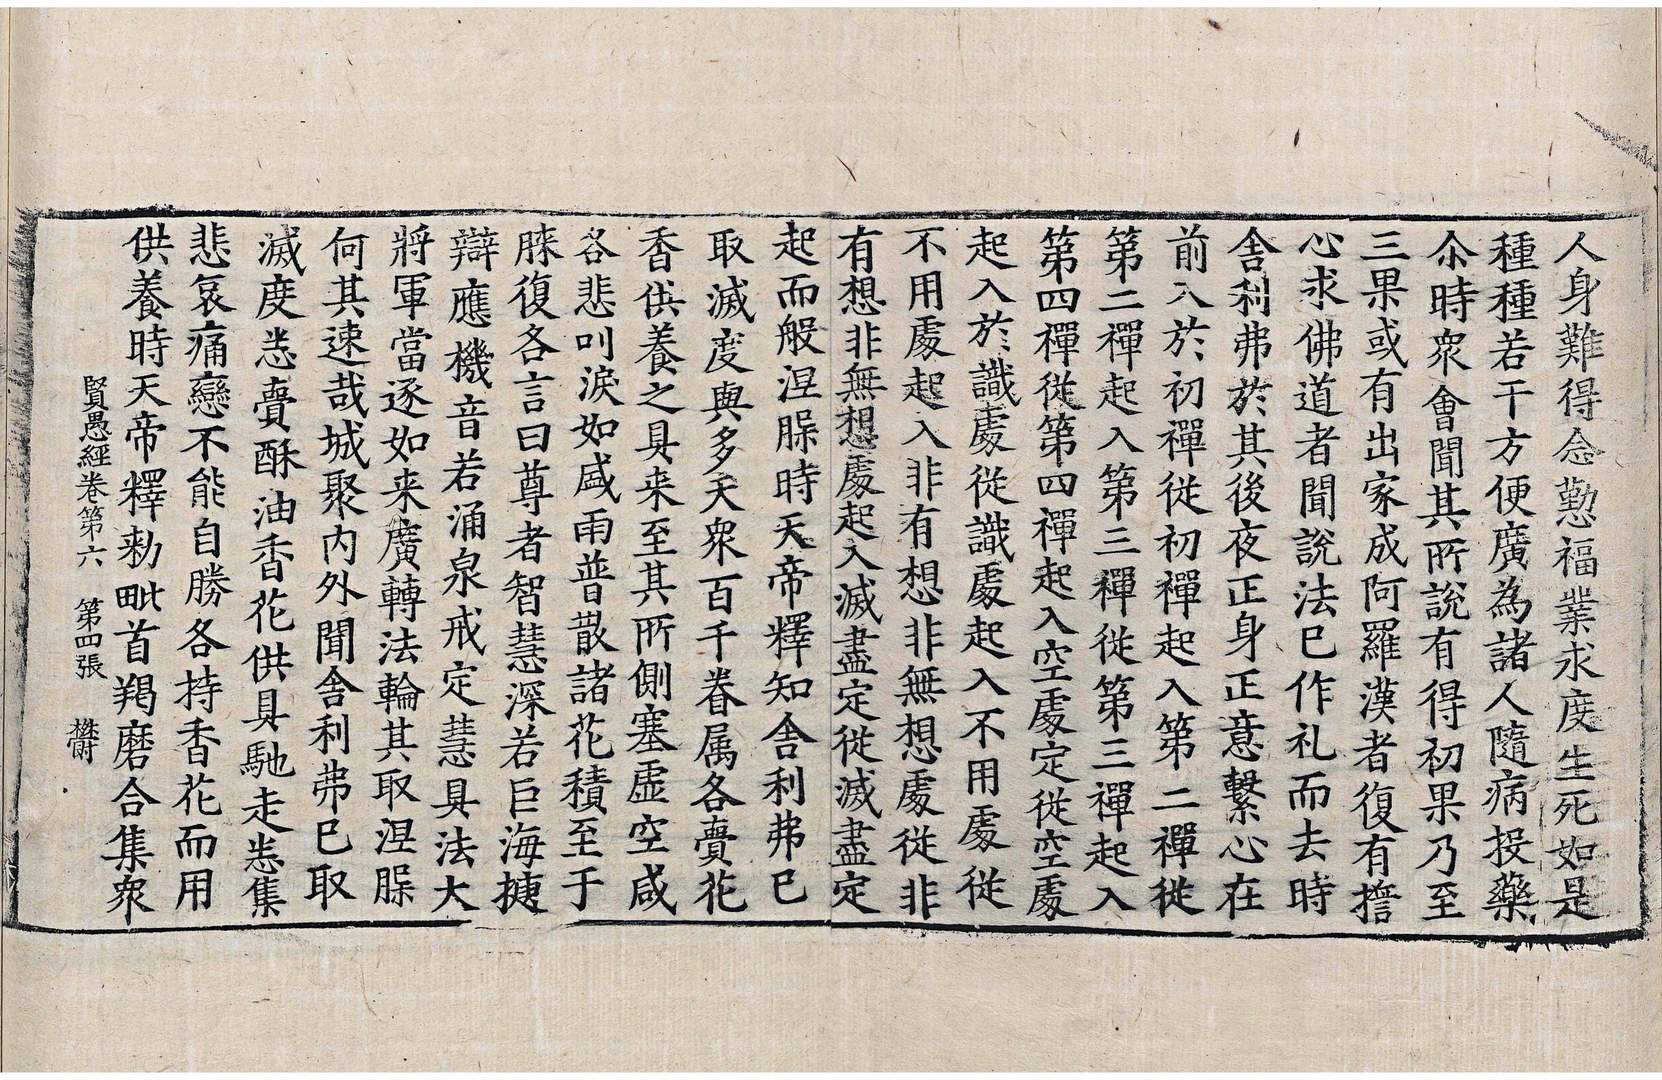 人身難得念懃福業求度生死如是
種種若干方便廣為諸人隨病投藥
尒時衆會聞其所說有得初果乃至
三果或有出家成阿羅漢者復有擔
心求佛道者聞說法已作礼而去時
舎利弗於其後夜正身正意繫心在
前入於初禪從初禪起入第二禪從
第二禪起入第三禪從第三禪起入
第四禪從第四禪起入空處定從空處
起入於識處從識處起入不用處從
不用處起入非有想非無想處從非
有想非無想處起入滅盡定從滅盡定
起而般涅脲時天帝釋知舎利弗已
取滅度與多天衆百千眷属各賷花
香供養之具来至其所側塞虛空咸
各悲叫淚如盛雨普散諸花積至于
脒復各言曰尊者智慧深若巨海揵
辯應機音若涌泉戒定慧具法大
將軍當逐如来廣轉法輪其取涅脲
何其速哉城聚内外聞舎利弗已取
滅度悉賷酥油香花供具馳走悉集
悲哀痛戀不能自勝各持香花而用
供養時天帝釋勑毗首羯磨合集衆
賢愚經卷第六 第四張